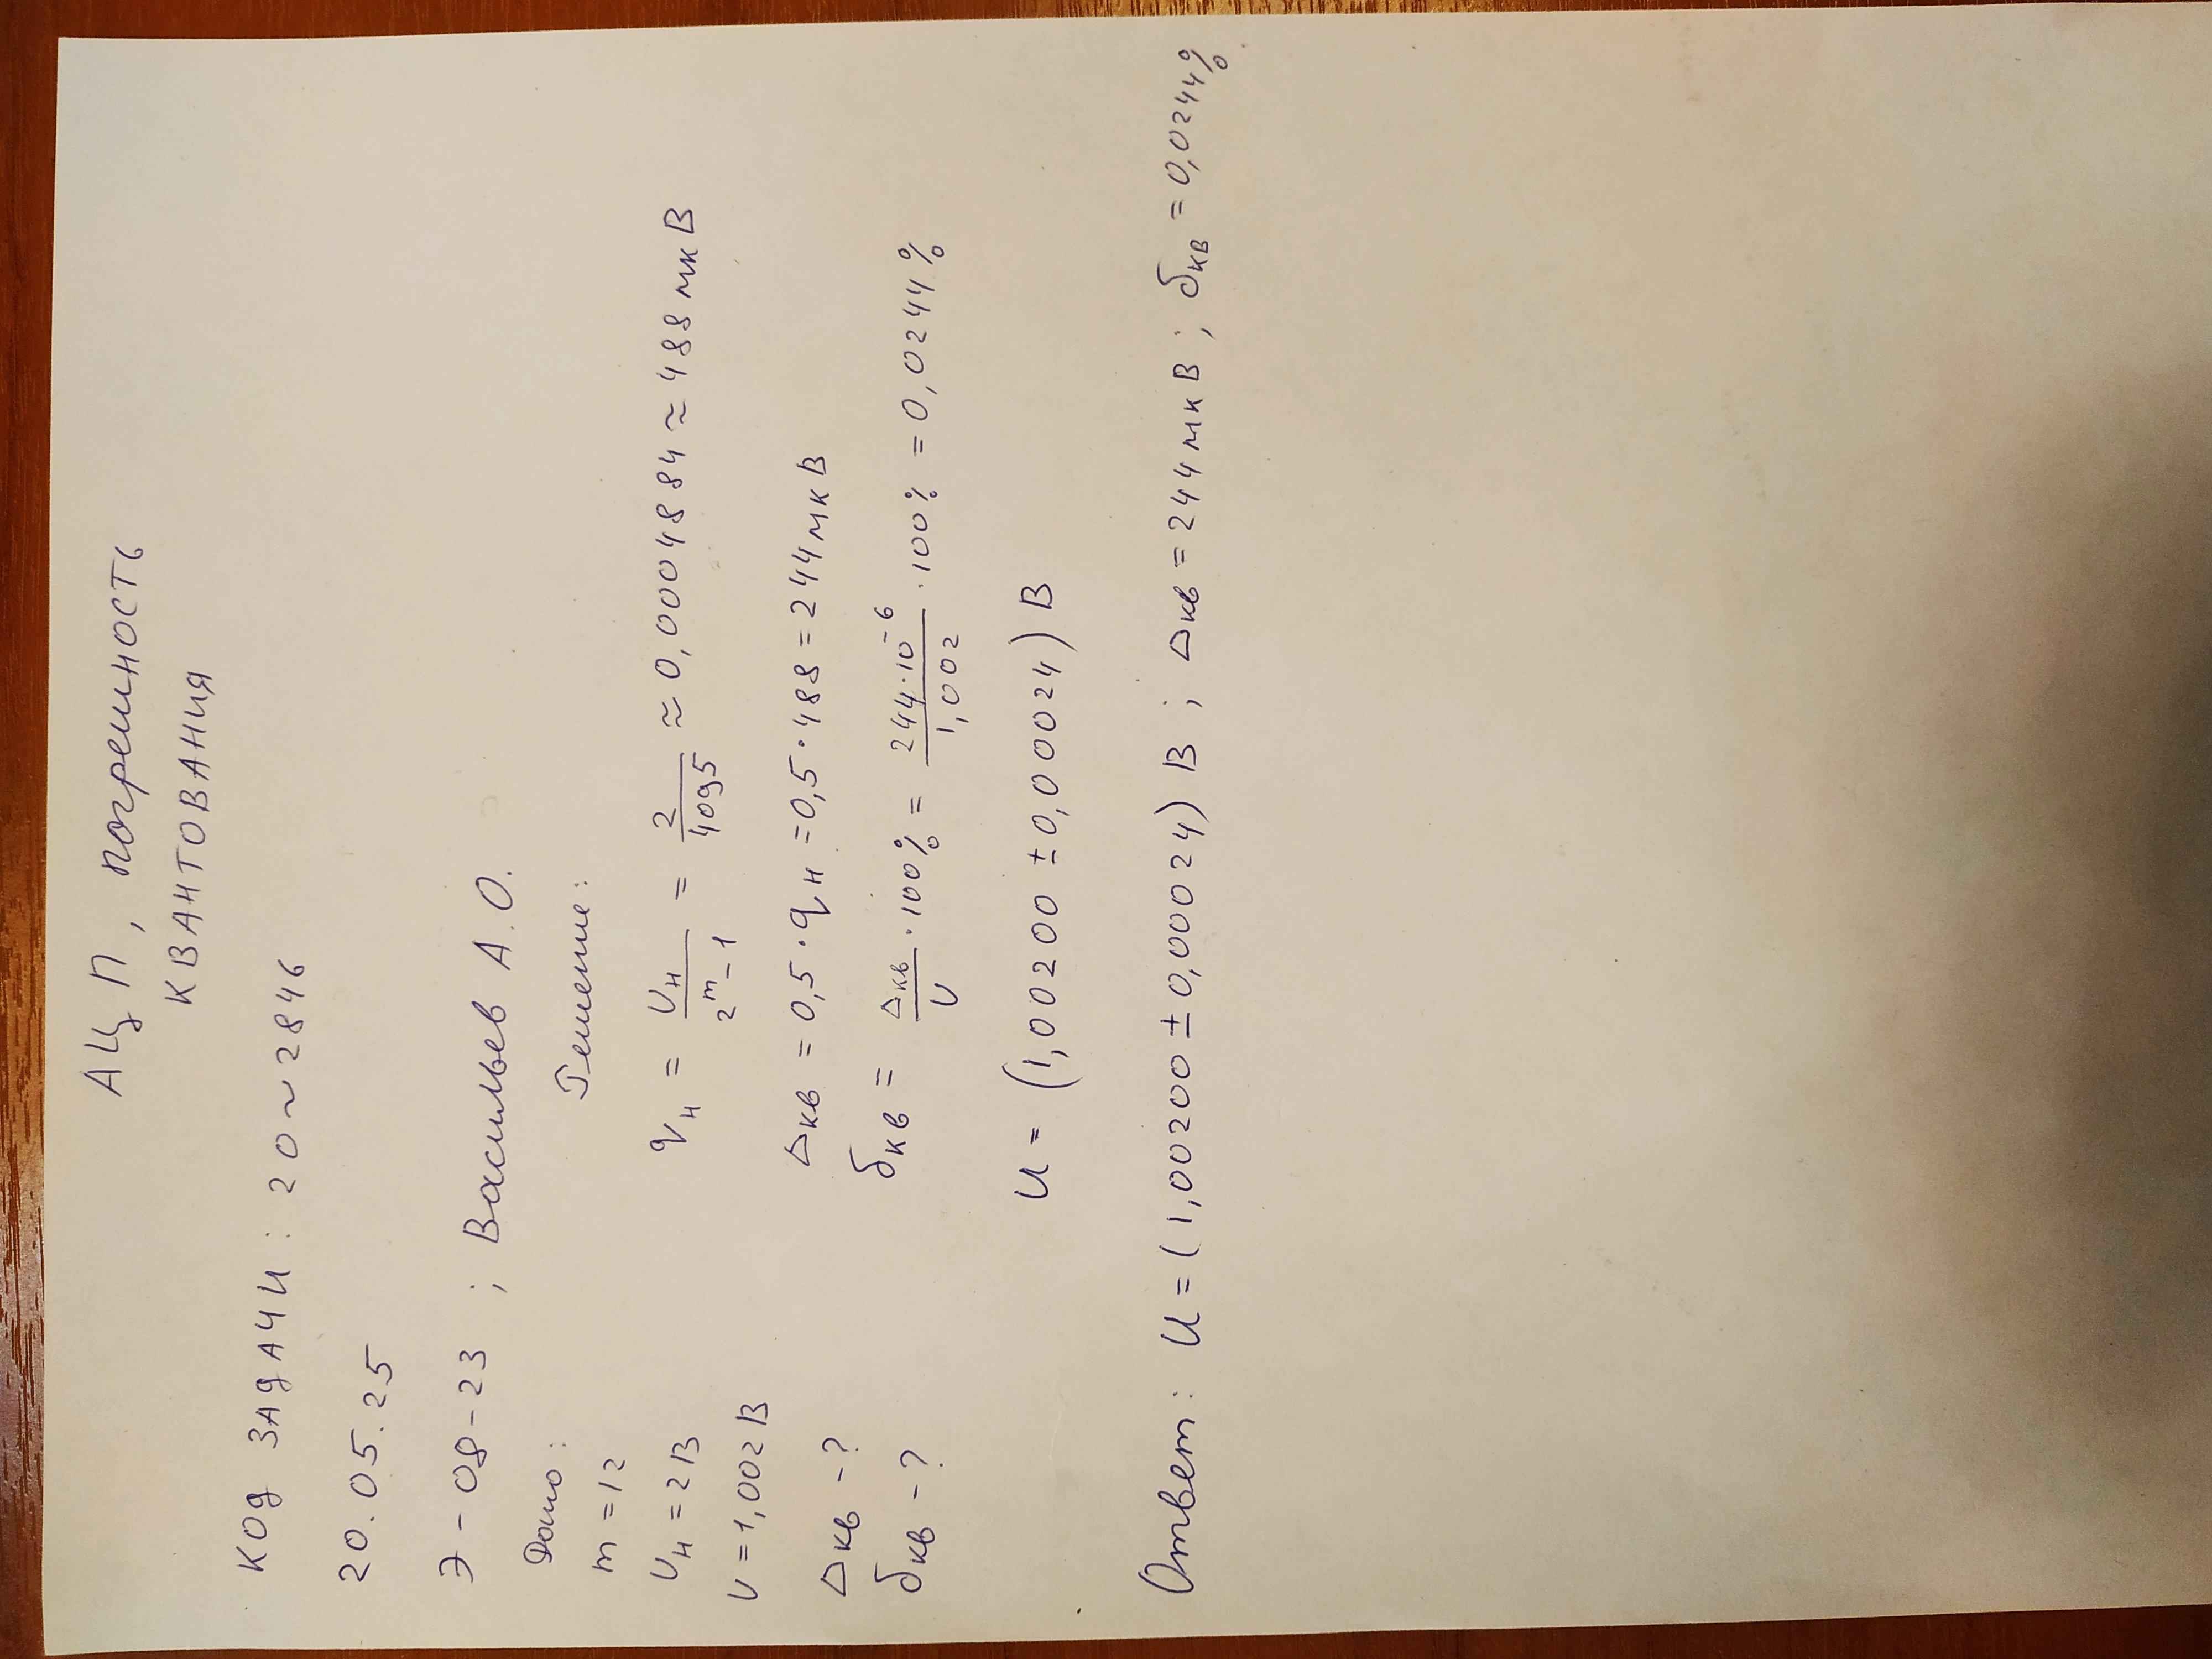 АЦП, погрешность
квантования
Код задачи: 20~2846
20.05.25
Э-08-23 ; Васильев А.О.
Дано:
m = 12
Uн = 2В
U = 1,002В
Δкв -?
δкв -?
Решение:
qн = Uн / 2^m - 1 = 2 / 4095 ≈ 0,0004884 ≈ 488 мкВ
Δкв = 0,5 · qн = 0,5 · 488 = 244 мкВ
δкв = Δкв / U · 100% = 244·10^-6 / 1,002 · 100% = 0,0244%
U = (1,00200 ± 0,00024) В
Ответ: U = (1,00200 ± 0,00024) В ; Δкв = 244 мкВ ; δкв = 0,0244%